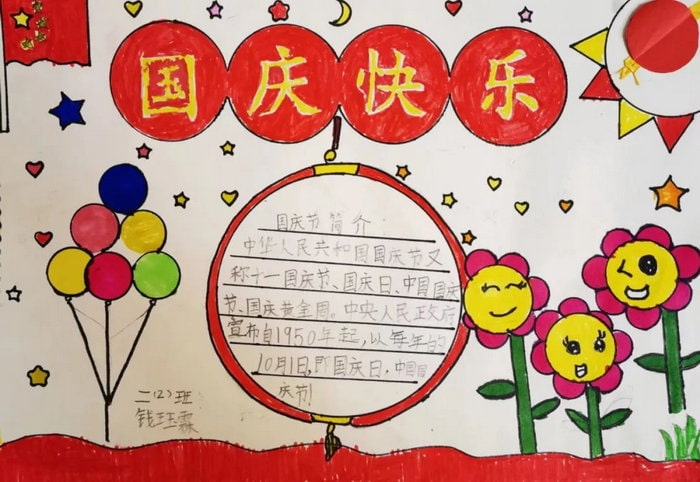 国庆快乐
国庆节简介
中华人民共和国国庆节又
称十一国庆节、国庆日、中国国庆
节、国庆黄金周。中央人民政府
宣布自1950年起,以每年的
10月1日,即国庆日,中国国
庆节!
二(2)班
钱珏霖